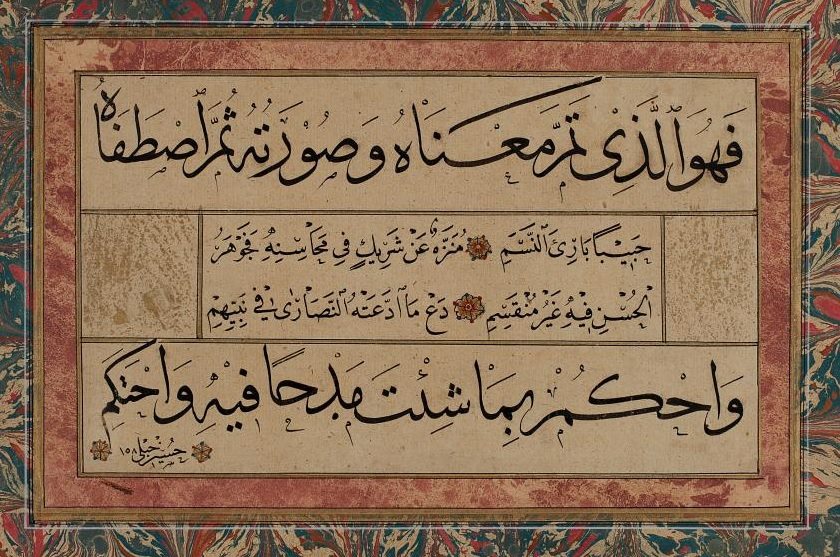 فَهُوَ الَّذِي تَمَّ مَعْنَاهُ وَصُوْرَتُهُ ثُمَّ اصْطَفَاهُ
حَبِيْبًا بَارِئُ النَّسَمِ مُنَزَّهٌ عَنْ شَرِيكٍ فِي مَحَاسِنِهِ فَجَوْهَرُ
الْحُسْنِ فِيْهِ غَيْرُ مُنْقَسِمِ دَعْ مَا ادَّعَتْهُ النَّصَارٰى فِي نَبِيِّهِمِ
وَاحْكُمْ بِمَا شِئْتَ مَدْحًا فِيْهِ وَاحْتَكِمِ